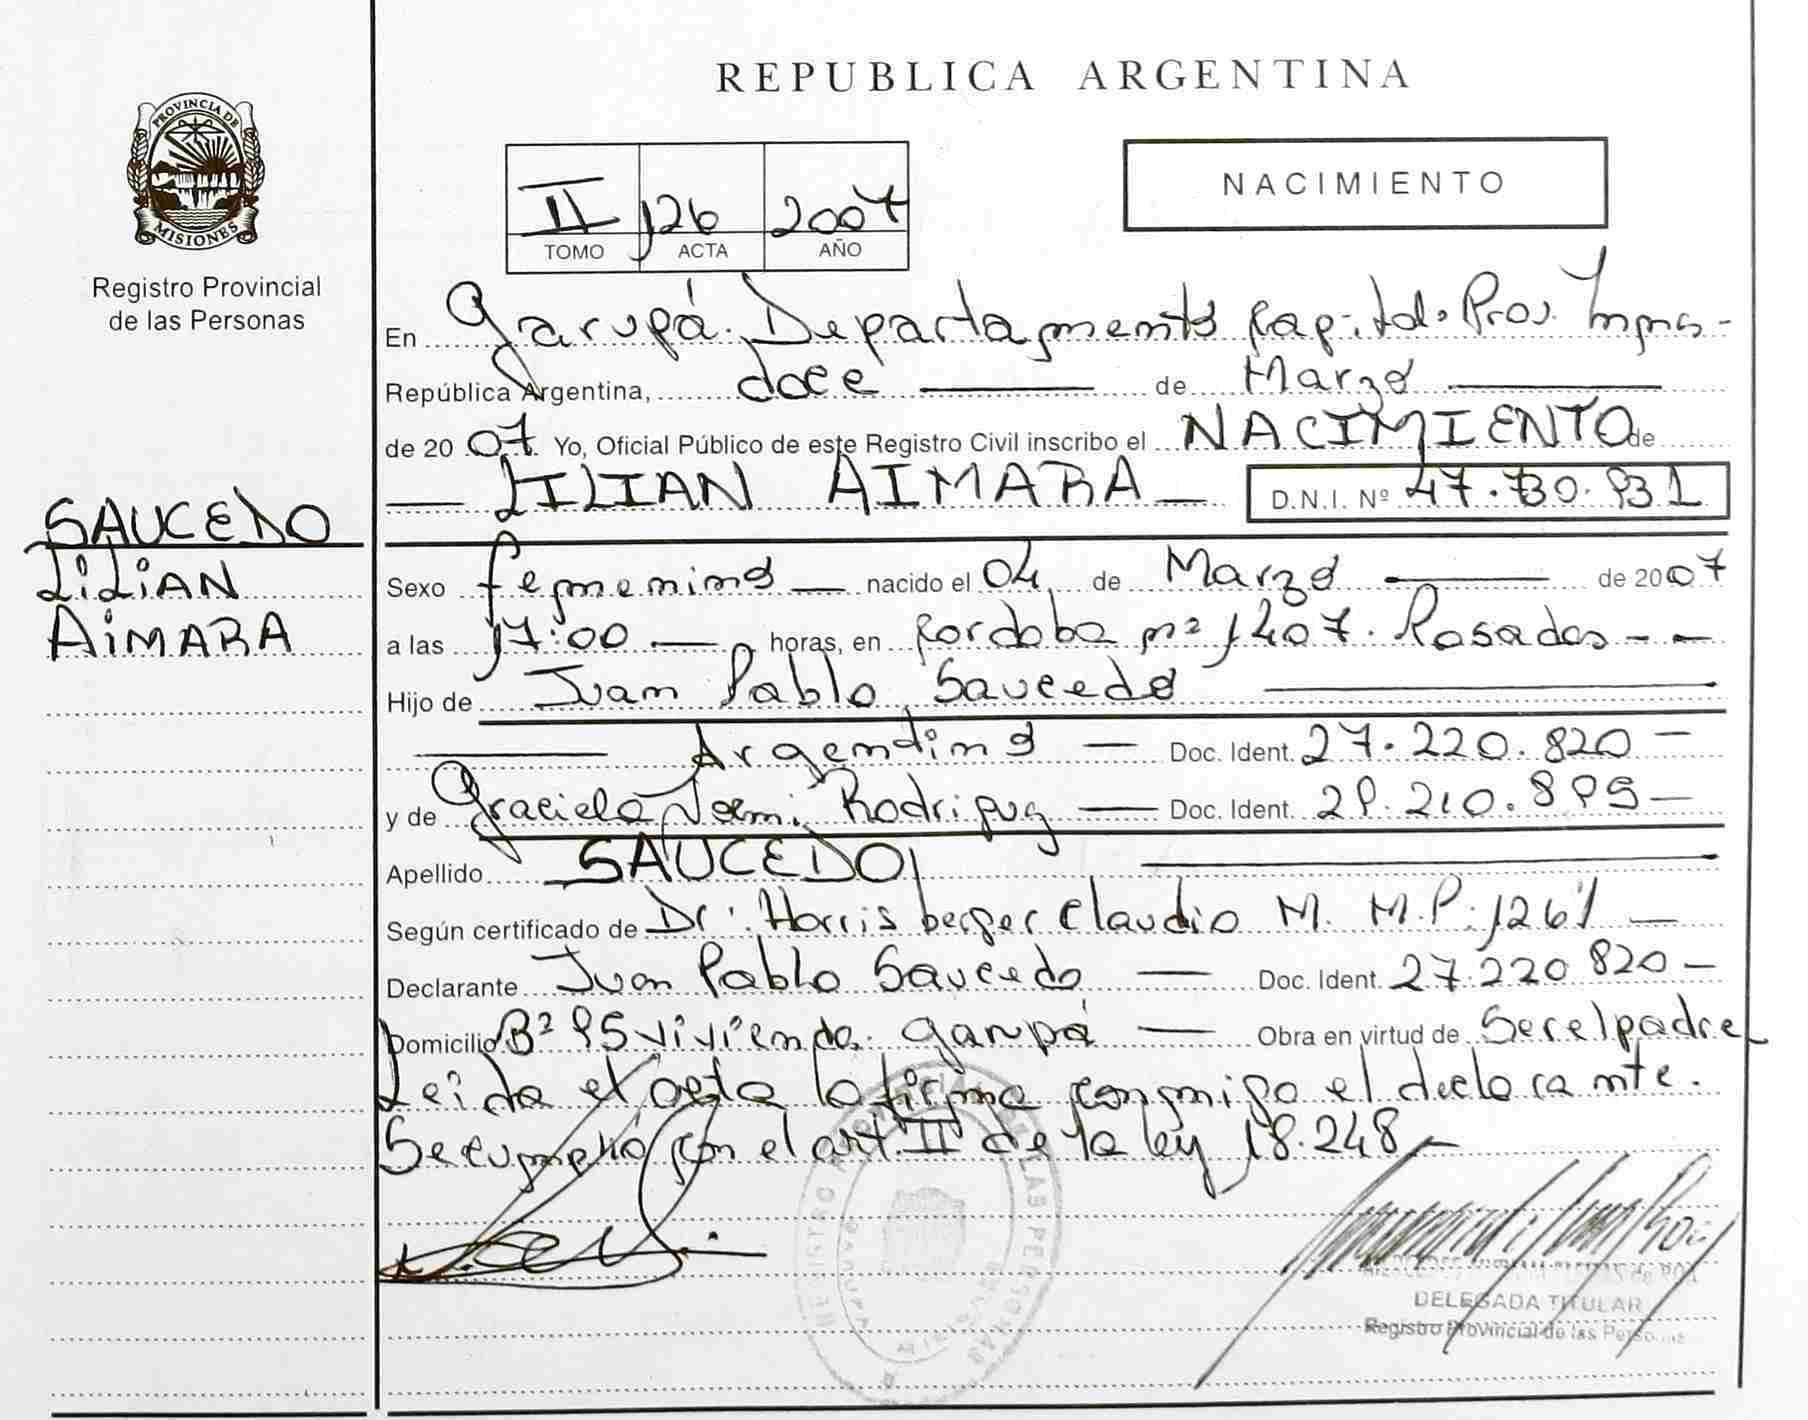 PROVINCIA DE
MISIONES
Registro Provincial
de las Personas
SAUCEDO
LiLiAN
AiMARA
REPUBLICA ARGENTINA
II 126 2007
TOMO ACTA AÑO
NACIMIENTO
En Garupá. Departamento Capital. Prov. Mnes -
República Argentina, doce de Marzo
de 2007. Yo, Oficial Público de este Registro Civil inscribo el NACIMIENTO de
LILIAN AIMARA D.N.I. Nº 47.730.931
Sexo femenino nacido el 04 de Marzo de 2007
a las 17:00 horas, en Cordoba nº 1407. Posadas - -
Hijo de Juan Pablo Saucedo
Argentino Doc. Ident. 27.220.820 -
y de Graciela Noemi Rodriguez Doc. Ident. 29.210.895 -
Apellido SAUCEDO
Según certificado de Dr. Harrisberger Claudio M. M.P. 1261 -
Declarante Juan Pablo Saucedo Doc. Ident. 27.220.820 -
Domicilio Bº 95 vivienda. Garupá Obra en virtud de Ser el padre
Leida el acta la firma conmigo el declarante.
Se cumplió con el art. II de la ley 18.248 -
DELEGADA TITULAR
Registro Provincial de las Personas